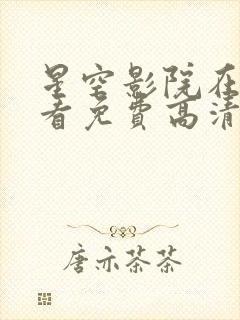 星空影院在
看免費高清
唐亦茶茶